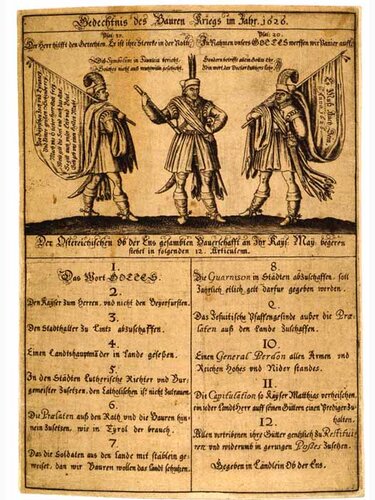 Gedechtnis des Bauren Kriegs im Jahr. 1626.
Psal: 37. Psal: 20.
Der Herr hilfft den Gerechten. Er ist ihre Stercke in der Noth. In Nahmen unsers GOTTES werffen wir Panier auff.
Das Symbolum in Summa bericht,
Solches nicht aus muthwiln geschicht,
Sondern betrifft allein Gottes Ehr
Es Muß Also Sein
Der Ostereichischen Ob der Ens gesambten Baurschafft an Ihr Kays: May: begeren
stehet in folgenden 12. Articulem.
1.
Das Wort GOTTES.
2.
Den Kayser zum Herren, vnd nicht den Beyerfursten.
3.
Den Stadthalter zu Lintz abzuschaffen.
4.
Einen Landtshauptman der im Lande gesessen.
5.
In den Städten Lutherische Richter vnd Bur:
germeister zusetzen, den Catholischen ist nicht zutrauen.
6.
Die Prælaten auß den Rath vnd die Bauren hin:
nein zusetzen, wie in Tyrol der brauch.
7.
Das die Soldaten aus den Lande mit stäblein ge:
weiset, dan wir Bauren wollen das Landt schutzen.
8.
Die Guarnison in Städten abzuschaffen, soll
Jahrlich etlich gelt darfur gegeben werden.
9.
Das Jesuitische Pfaffengesinde außer die Præ:
laten auß den Lande zuschaffen.
10.
Einen General Perdon allen Armen vnd
Reichen Hohes vnd Nider standes.
11.
Die Capitulation so Kayser Matthias verheischen,
ein ieder LandtHerr auff seinen Güttern einen Prediger zu
halten.
12.
Allen vertribenen ihre Gütter gentzlich zu Restituiren
vnd widerumb in geruigen Posses Zusehen.
Gegeben in Ländlein Ob der Ens.